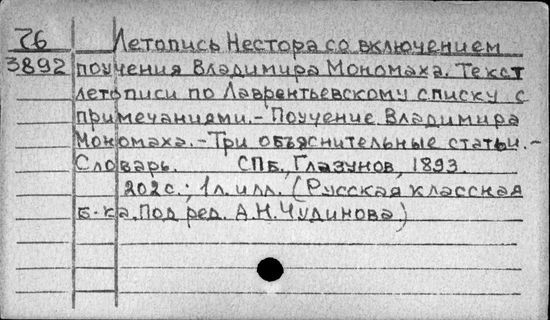 26 Летопись Нестора со включением
3892 поучения Владимира Мономаха. Текст
летописи по Лаврентьевскому списку с
примечаниями.-Поучение Владимира
Мономаха.-Три объяснительные статьи.-
Словарь. СПБ., Глазунов, 1893.
202с.; 1л.илл. (Русская классная
б-ка. Под ред. А.Н.Чудинова)